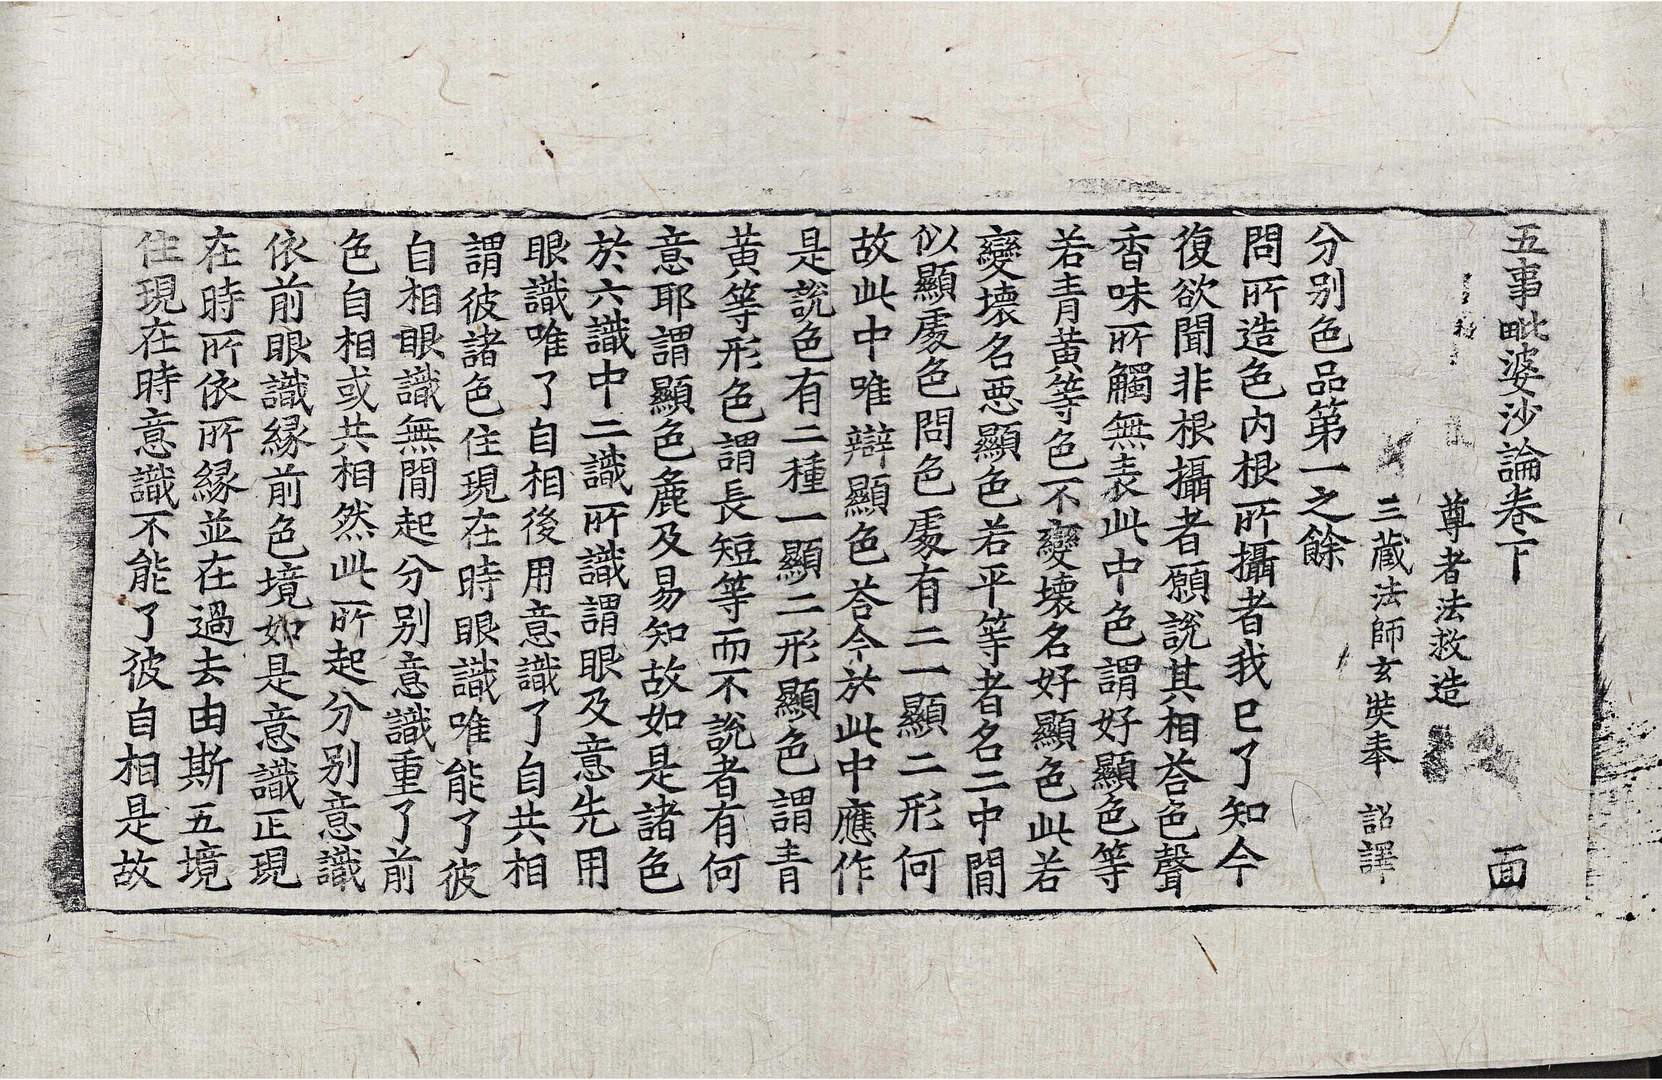 五事毗婆沙論卷下　面
尊者法救造
三藏法師玄奘奉　詔譯
分别色品第一之餘
問所造色内根所攝者我已了知今
復欲聞非根攝者願說其相荅色聲
香味所觸無表此中色謂好顯色等
若青黄等色不變壞名好顯色此若
變壞名惡顯色若平等者名二中間
似顯處色問色處有二一顯二形何
故此中唯辯顯色荅今於此中應作
是說色有二種一顯二形顯色謂青
黄等形色謂長短等而不說者有何
意耶謂顯色麁及易知故如是諸色
於六識中二識所識謂眼及意先用
眼識唯了自相後用意識了自共相
謂彼諸色住現在時眼識唯能了彼
自相眼識無間起分别意識重了前
色自相或共相然此所起分别意識
依前眼識縁前色境如是意識正現
在時所依所縁並在過去由斯五境
住現在時意識不能了彼自相是故